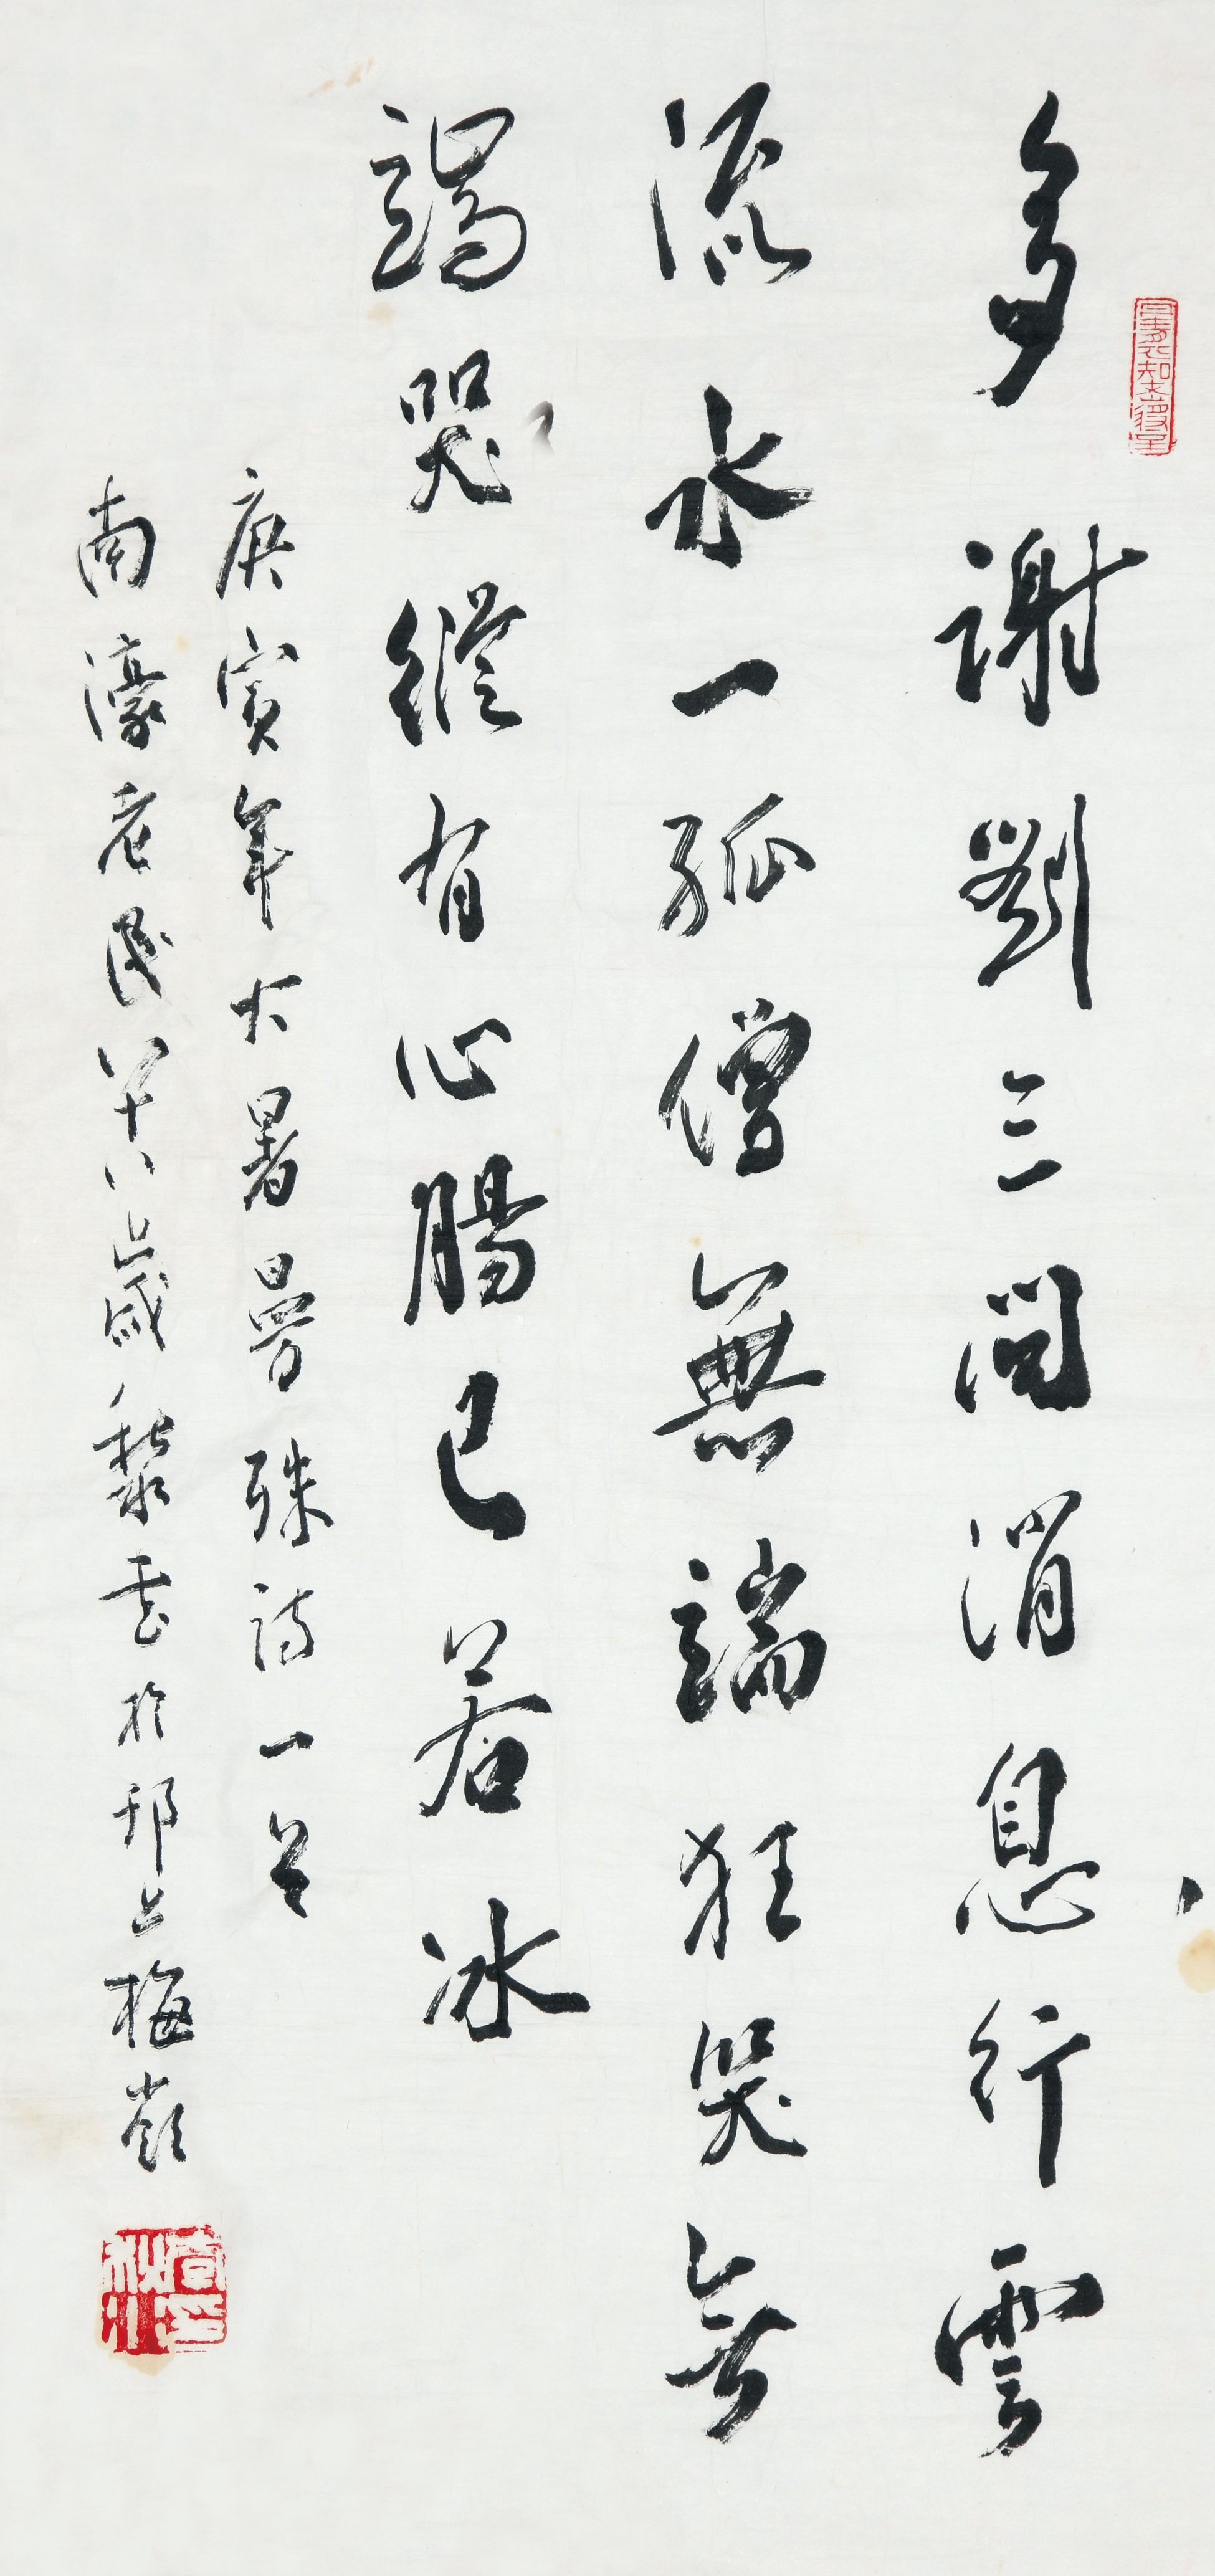 多謝劉三問消息行雲
流水一孤僧無端狂哭無
端哭縱有心腸已若冰
庚寅年大暑曼殊詩一首
南濠老民八十八歲秋水書於邗上梅嶺